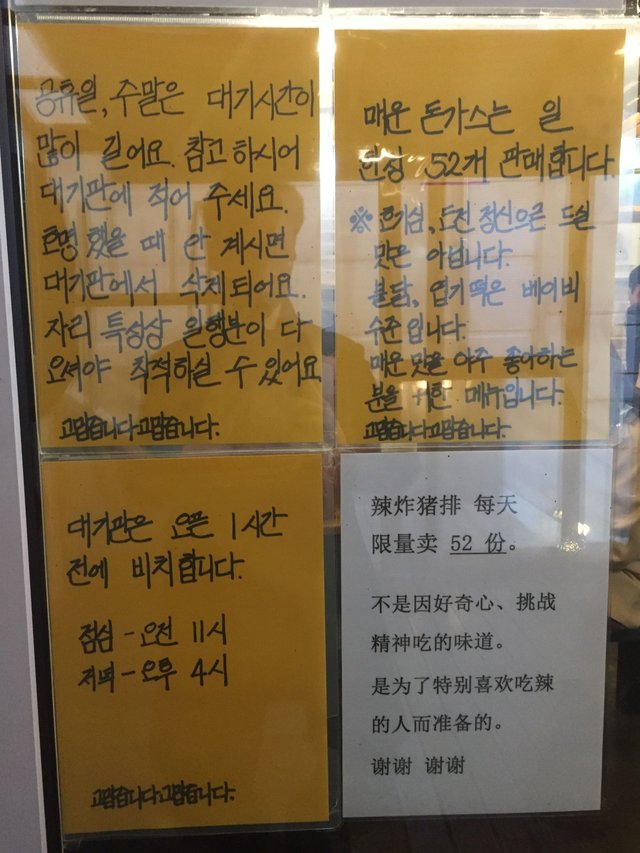 공휴일, 주말은 대기시간이
많이 길어요. 참고하시어
대기판에 적어 주세요.
호명 했을 때 안 계시면
대기판에서 삭제되어요.
자리 특성상 일행분이 다
오셔야 착석하실 수 있어요
고맙습니다고맙습니다.
매운 돈가스는 일
한정 52개 판매합니다.
※ 호기심, 도전 정신으로 드실
맛은 아닙니다.
불닭, 엽기떡은 베이비
수준입니다.
매운 맛을 아주 좋아하는
분을 위한 메뉴입니다.
고맙습니다고맙습니다.
대기판은 오픈 1시간
전에 비치합니다.
점심 - 오전 11시
저녁 - 오후 4시
고맙습니다고맙습니다.
辣炸猪排 每天
限量卖 52 份。
不是因好奇心、挑战
精神吃的味道。
是为了特别喜欢吃辣
的人而准备的。
谢谢 谢谢